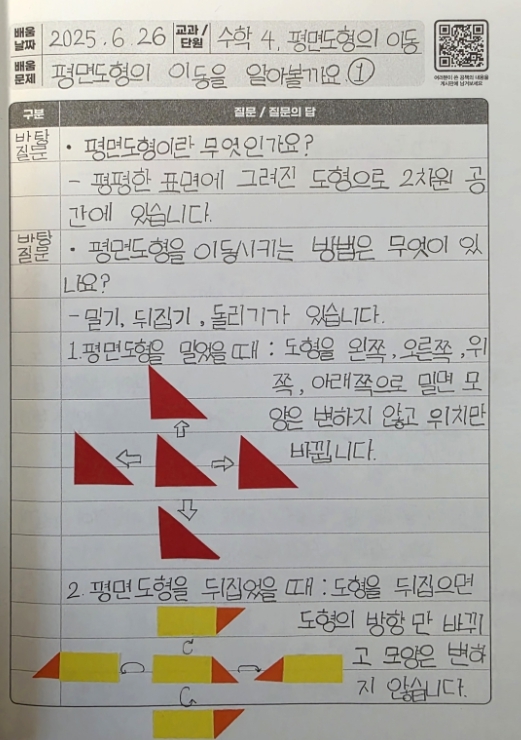 배움 날짜 2025. 6. 26 교과/단원 수학 4. 평면도형의 이동
배움 문제 평면도형의 이동을 알아볼까요 ①
구분 질문 / 질문의 답
바탕 질문 • 평면도형이란 무엇인가요?
- 평평한 표면에 그려진 도형으로 2차원 공
간에 있습니다.
바탕 질문 • 평면도형을 이동시키는 방법은 무엇이 있
나요?
- 밀기, 뒤집기, 돌리기가 있습니다.
1. 평면도형을 밀었을 때 : 도형을 왼쪽, 오른쪽, 위
쪽, 아래쪽으로 밀면 모
양은 변하지 않고 위치만
바뀝니다.
2. 평면도형을 뒤집었을 때 : 도형을 뒤집으면
도형의 방향만 바뀌
고 모양은 변하
지 않습니다.